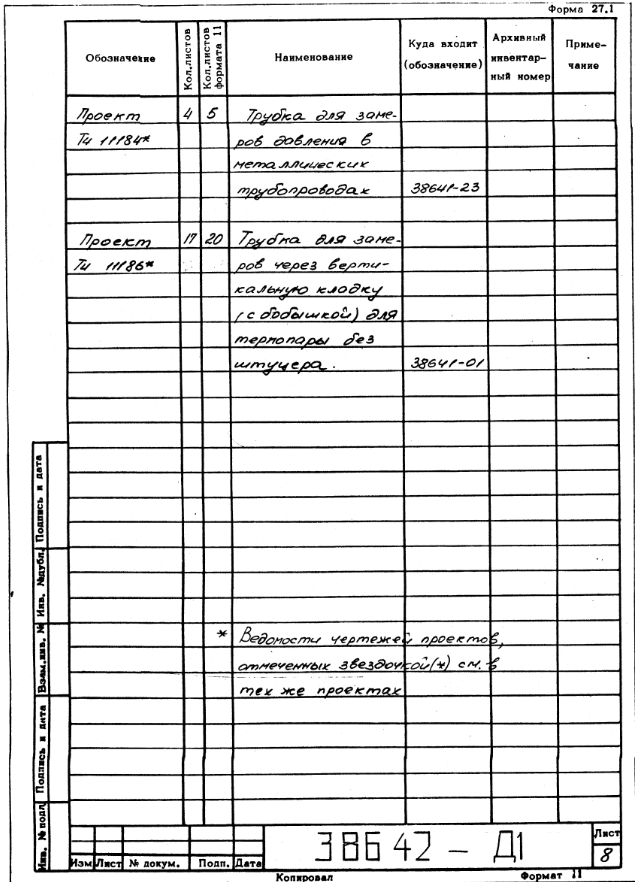 Форма 27.1
Обозначение Кол.листов Кол.листов формата 11 Наименование Куда входит (обозначение) Архивный инвентарный номер Примечание
Проект 4 5 Трубка для заме-
Т4 11184* ров давления в
металлических
трубопроводах 38641-23
Проект 17 20 Трубка для заме-
Т4 11186* ров через верти-
кальную кладку
(с бобышкой) для
термопары без
штуцера. 38641-01
* Ведомости чертежей проектов,
отмеченных звездочкой(*) см. в
тех же проектах
Инв. № подл. Подпись и дата Взам.инв. № Инв. №дубл. Подпись и дата
Изм Лист № докум. Подп. Дата
38642 - Д1
Лист
8
Копировал Формат 11